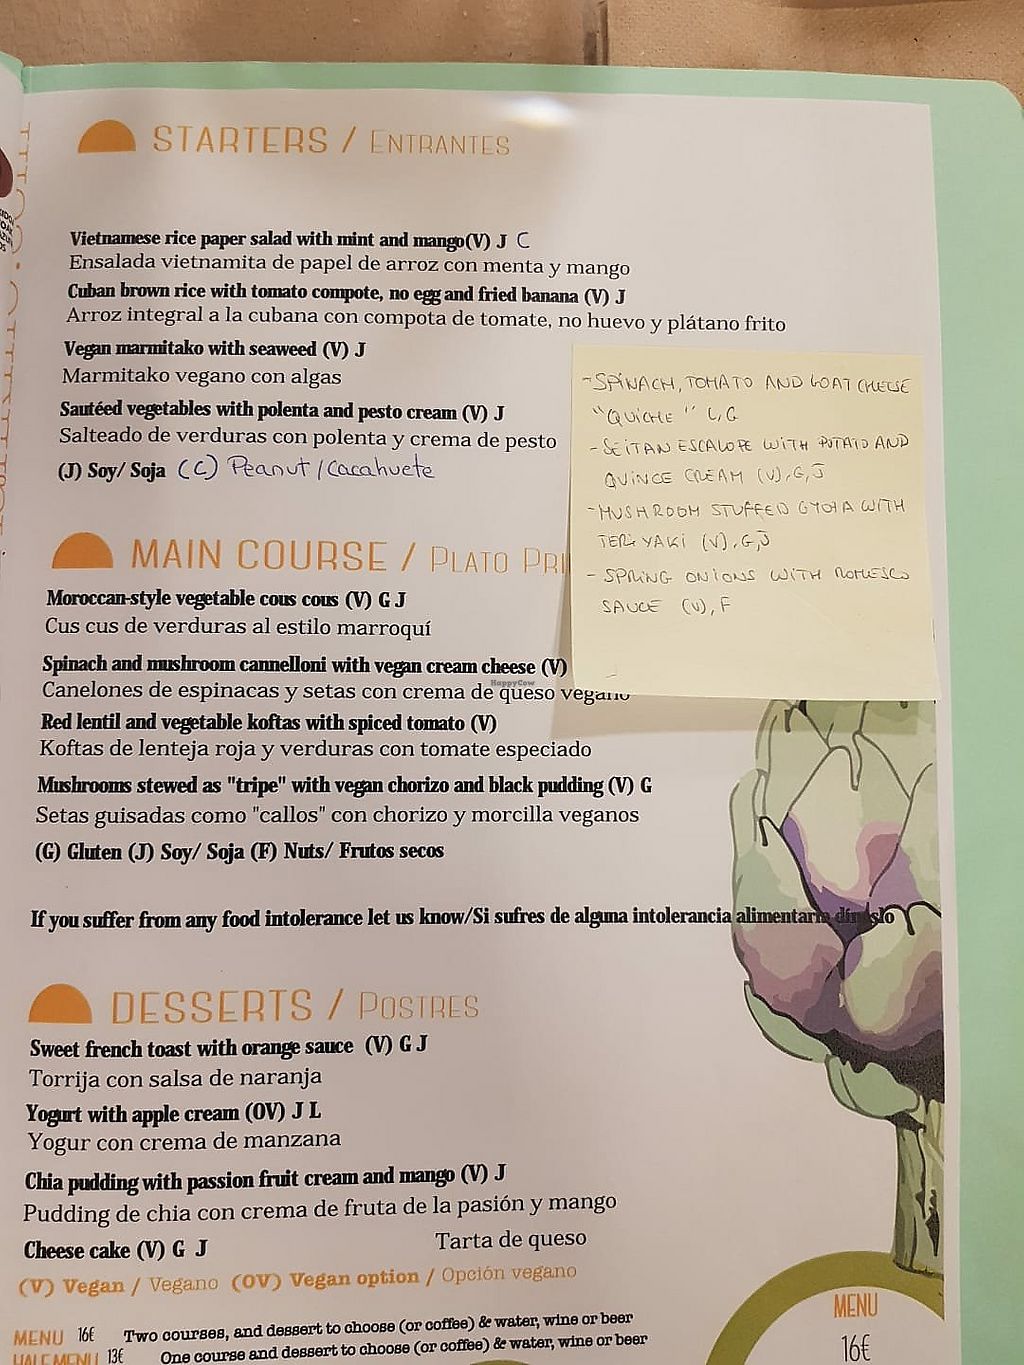 STARTERS / ENTRANTES
Vietnamese rice paper salad with mint and mango(V) J C
Ensalada vietnamita de papel de arroz con menta y mango
Cuban brown rice with tomato compote, no egg and fried banana (V) J
Arroz integral a la cubana con compota de tomate, no huevo y plátano frito
Vegan marmitako with seaweed (V) J
Marmitako vegano con algas
Sautéed vegetables with polenta and pesto cream (V) J
Salteado de verduras con polenta y crema de pesto
(J) Soy/ Soja (C) Peanut/Cacahuete
- SPINACH, TOMATO AND GOAT CHEESE
"QUICHE" L, G
- SEITAN ESCALOPE WITH POTATO AND
QUINCE CREAM (V), G, J
- MUSHROOM STUFFED GYOZA WITH
TERIYAKI (V), G, J
- SPRING ONIONS WITH ROMESCO
SAUCE (V), F
MAIN COURSE / PLATO PRI
Moroccan-style vegetable cous cous (V) G J
Cus cus de verduras al estilo marroquí
Spinach and mushroom cannelloni with vegan cream cheese (V)
Canelones de espinacas y setas con crema de queso vegano
HappyCow
Red lentil and vegetable koftas with spiced tomato (V)
Koftas de lenteja roja y verduras con tomate especiado
Mushrooms stewed as "tripe" with vegan chorizo and black pudding (V) G
Setas guisadas como "callos" con chorizo y morcilla veganos
(G) Gluten (J) Soy/ Soja (F) Nuts/ Frutos secos
If you suffer from any food intolerance let us know/Si sufres de alguna intolerancia alimentaria dínoslo
DESSERTS / POSTRES
Sweet french toast with orange sauce (V) G J
Torrija con salsa de naranja
Yogurt with apple cream (OV) J L
Yogur con crema de manzana
Chia pudding with passion fruit cream and mango (V) J
Pudding de chia con crema de fruta de la pasión y mango
Cheese cake (V) G J Tarta de queso
(V) Vegan / Vegano (OV) Vegan option / Opción vegano
MENU 16€ Two courses, and dessert to choose (or coffee) & water, wine or beer
HALF MENU 13€ One course and dessert to choose (or coffee) & water, wine or beer
MENU
16€